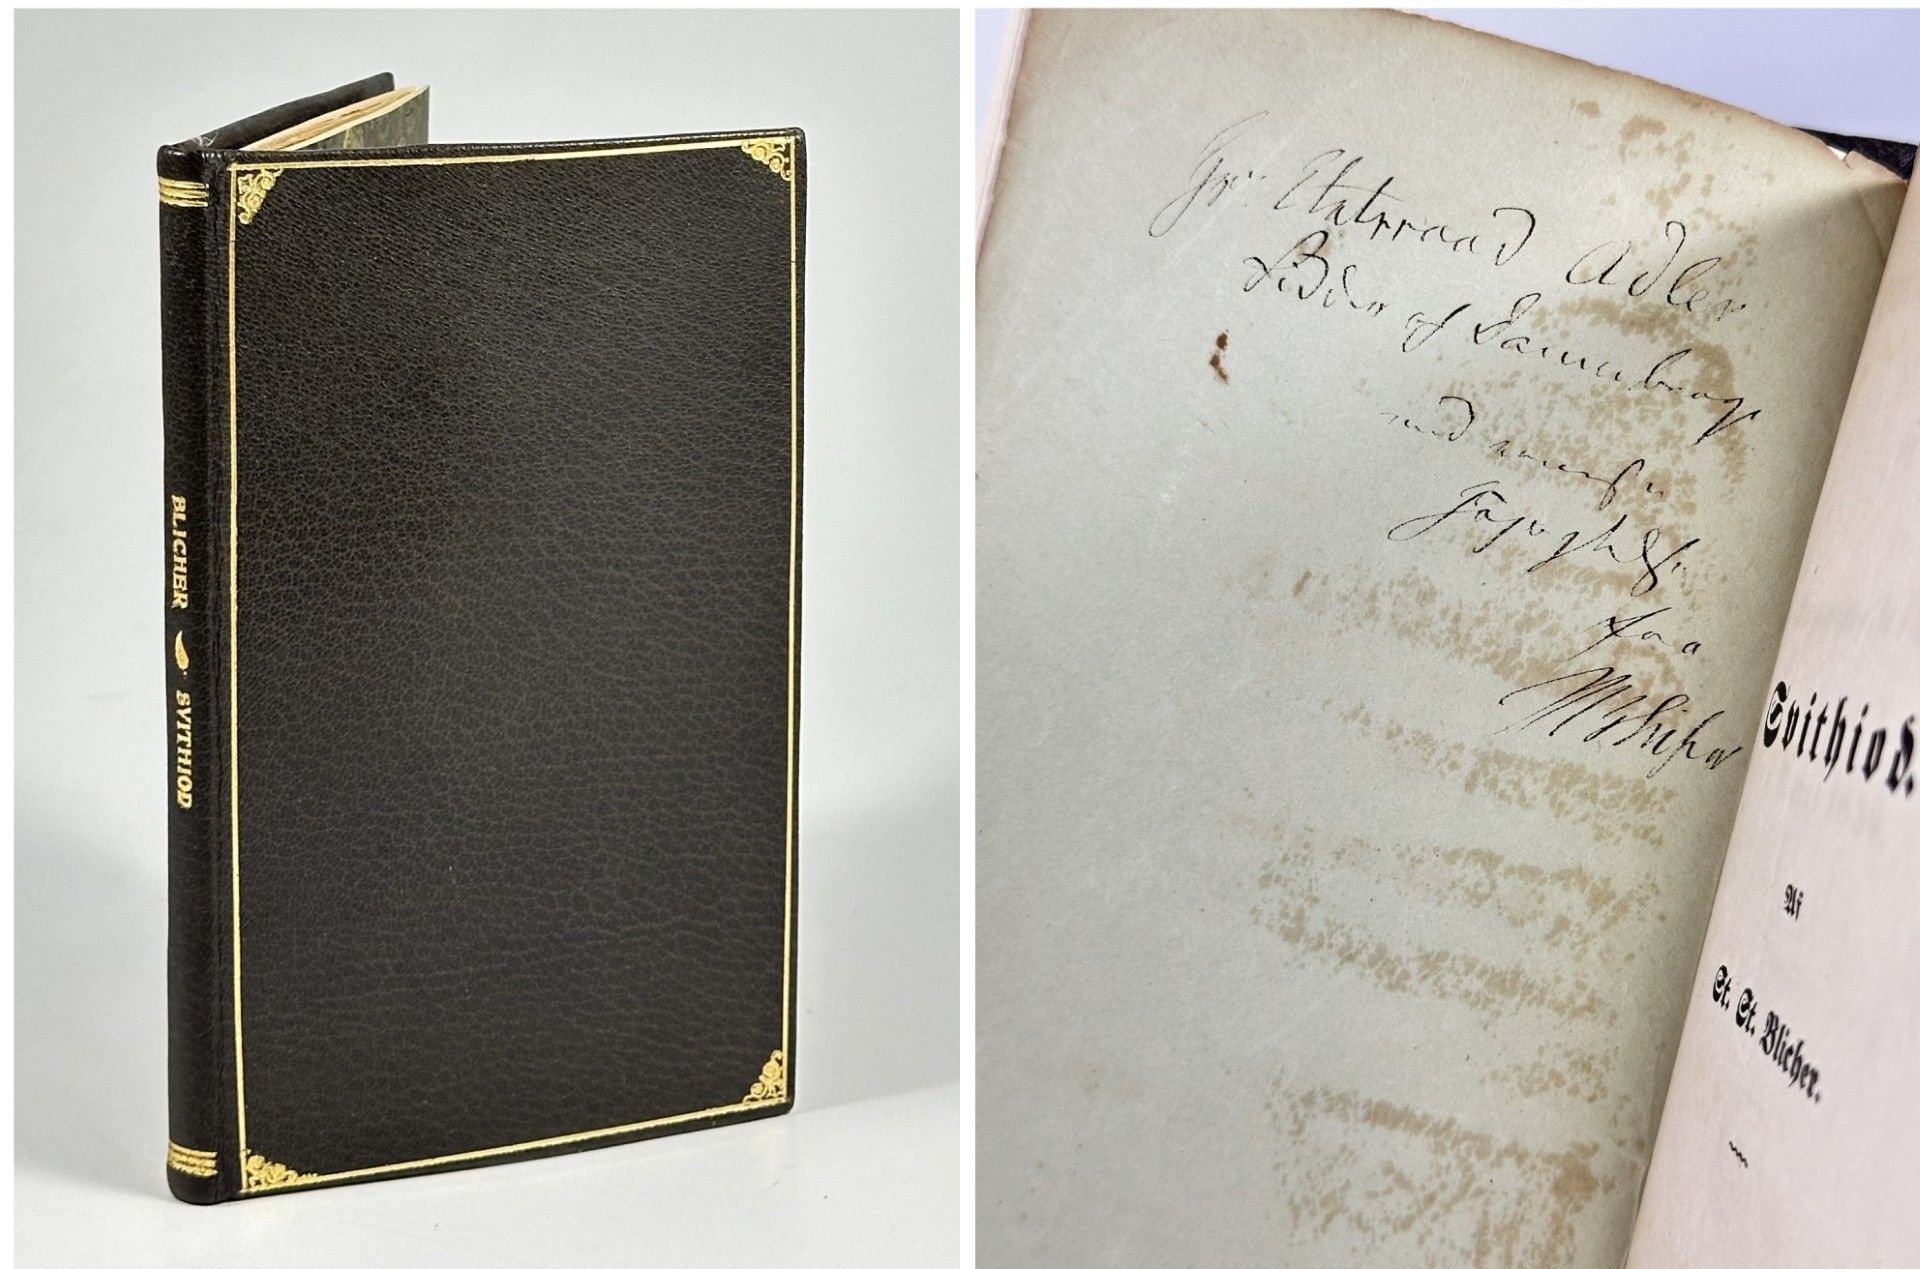 BLICHER SVITHIOD
Hr. Etatsraad Adler
Ridder af Dannebrog
med
Højagtelse
fra
Blicher
Svithiod.
Af
St. St. Blicher.